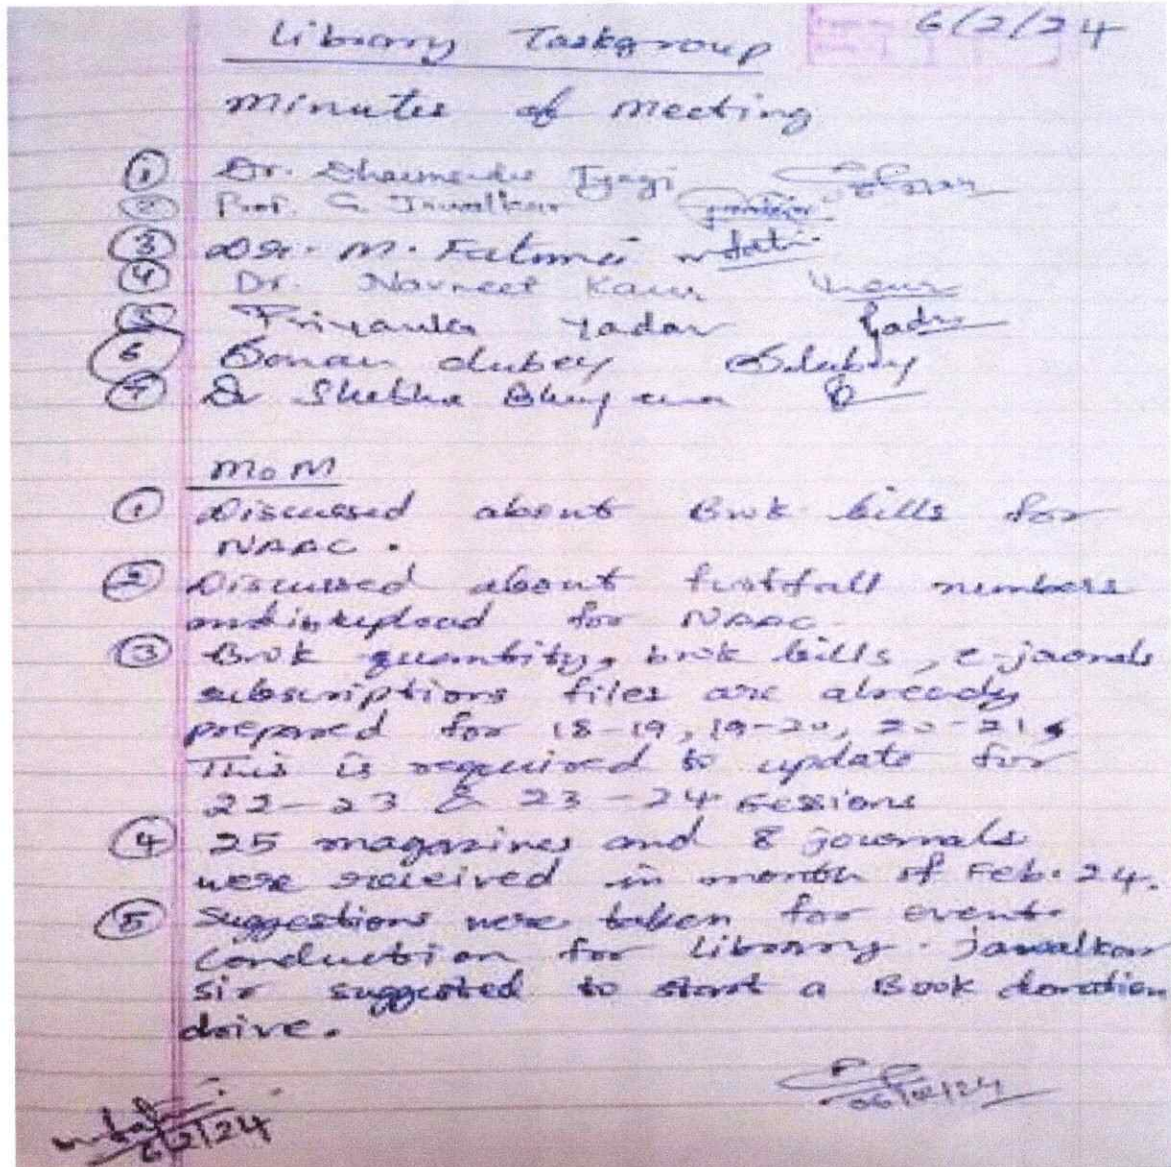 6/2/24
Library Taskgroup
Minutes of Meeting
① Dr. Tyagi
② Prof. G. Jawalkar
③ Dr. M. Fatima
④ Dr. Navneet Kaur Kaur
⑤ Priyanka Yadav
⑥ Sonam dubey SDubey
⑦ Dr
MoM
① Discussed about Book bills for
NAAC.
② Discussed about footfall numbers
for NAAC.
③ Book quantity, book bills, e-jaonals
subscriptions files are already
prepared for 18-19, 19-20, 20-21.
This is required to update for
22-23 & 23-24 sessions
④ 25 magazines and 8 journals
were received in month of Feb. 24.
⑤ Suggestions were taken for events
conduction for Library. Jawalkar
sir suggested to start a Book donation
drive.
06/02/24
6/2/24